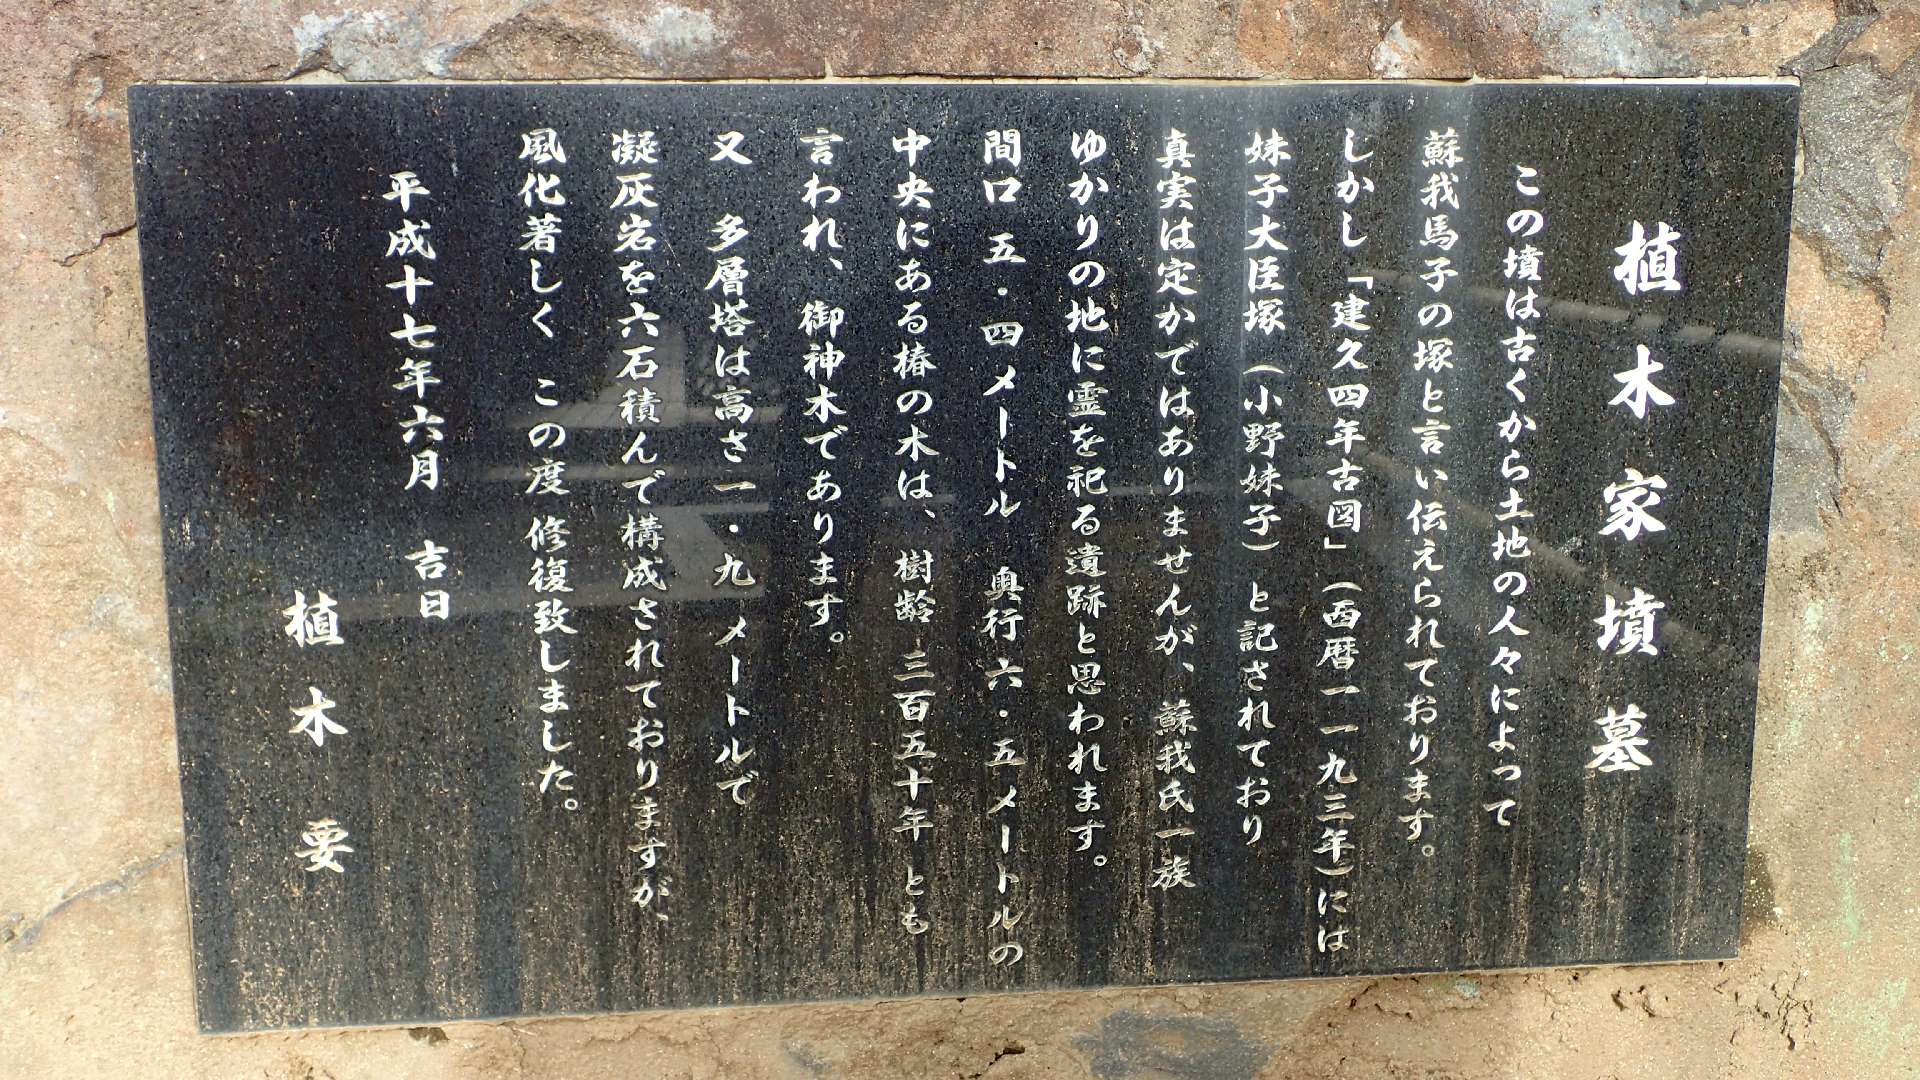 植木家墳墓
この墳は古くから土地の人々によって
蘇我馬子の塚と言い伝えられております。
しかし「建久四年古図」（西暦一一九三年）には
妹子大臣塚（小野妹子）と記されており
真実は定かではありませんが、蘇我氏一族
ゆかりの地に霊を祀る遺跡と思われます。
間口 五・四メートル 奥行六・五メートルの
中央にある椿の木は、樹齢 三百五十年とも
言われ、御神木であります。
又 多層塔は高さ一・九メートルで
凝灰岩を六石積んで構成されておりますが、
風化著しく この度 修復致しました。
平成十七年六月 吉日
植木 要